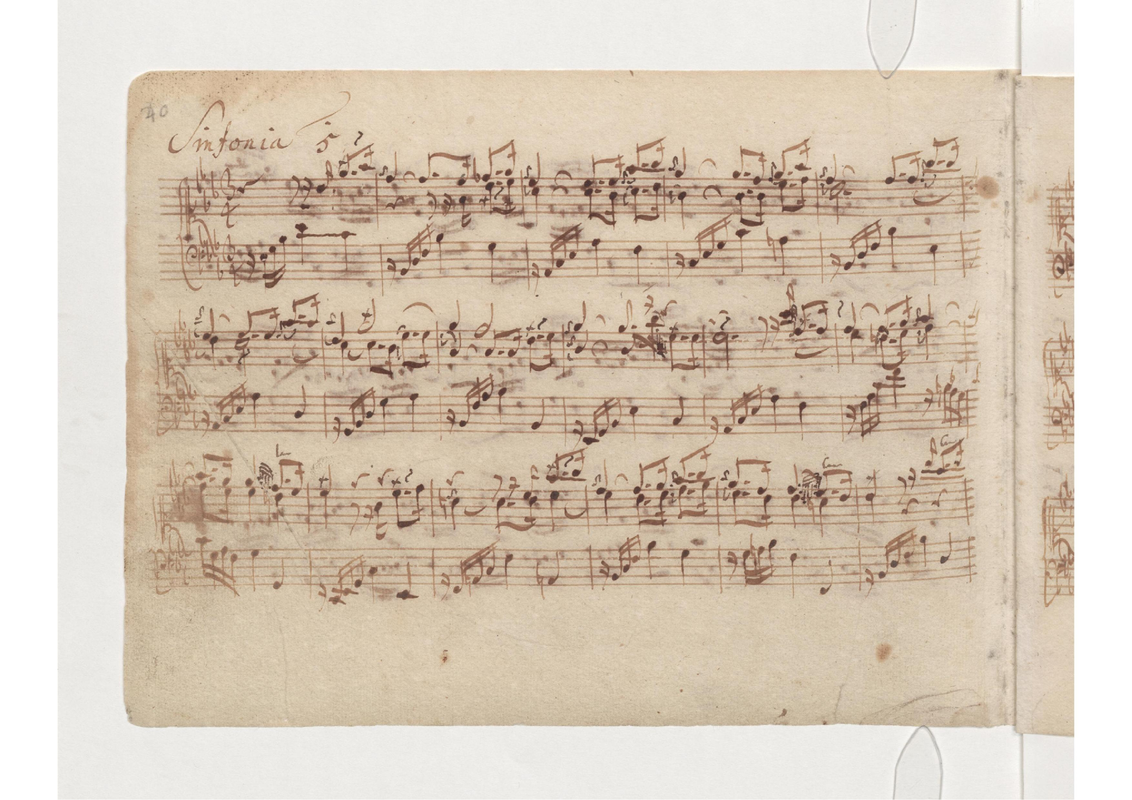 40
Sinfonia 5